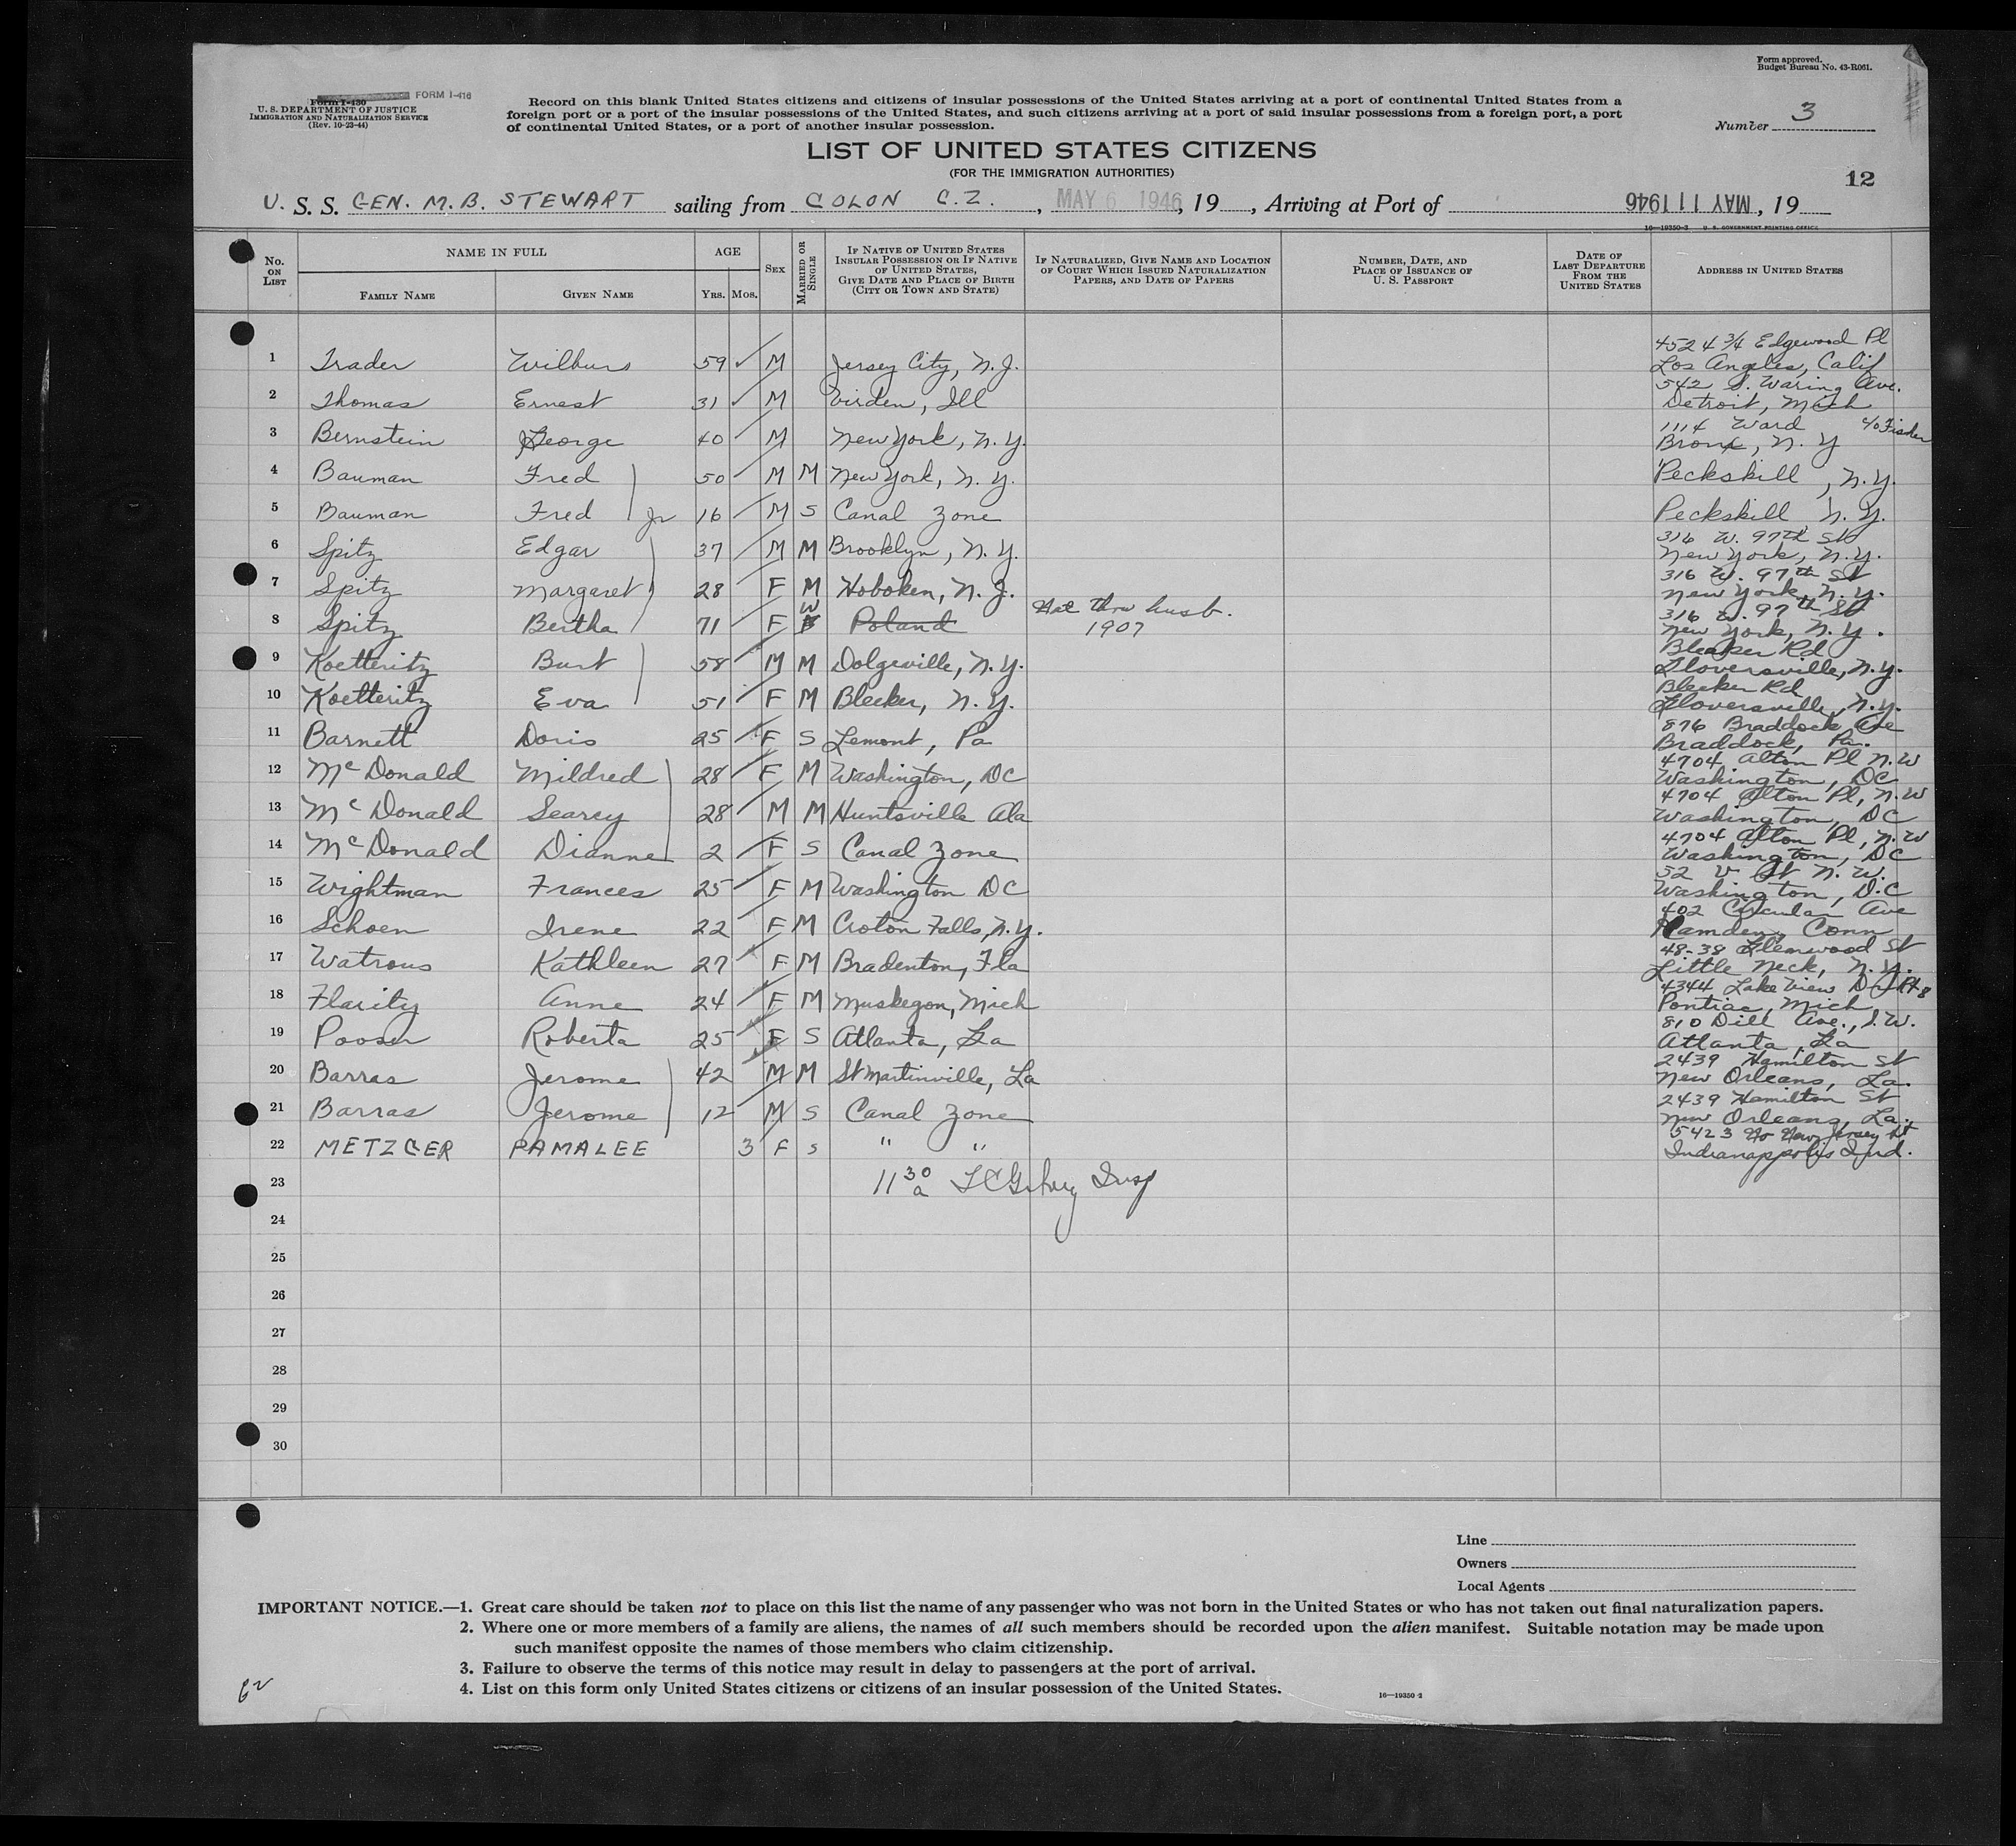 Form approved.
Budget Bureau No. 43-R061.
Form I-430 FORM I-416
U. S. DEPARTMENT OF JUSTICE
IMMIGRATION AND NATURALIZATION SERVICE
(Rev. 10-23-44)
Record on this blank United States citizens and citizens of insular possessions of the United States arriving at a port of continental United States from a
foreign port or a port of the insular possessions of the United States, and such citizens arriving at a port of said insular possessions from a foreign port, a port
of continental United States, or a port of another insular possession.
Number 3
LIST OF UNITED STATES CITIZENS
(FOR THE IMMIGRATION AUTHORITIES)
12
U. S. S. GEN. M. B. STEWART sailing from COLON C. Z. , MAY 6 1946, 19 , Arriving at Port of MAY 11 1946, 19
16—19350-3 U. S. GOVERNMENT PRINTING OFFICE
No. ON LIST
NAME IN FULL
FAMILY NAME
GIVEN NAME
AGE
YRS. MOS.
SEX
MARRIED OR SINGLE
IF NATIVE OF UNITED STATES
INSULAR POSSESSION OR IF NATIVE
OF UNITED STATES,
GIVE DATE AND PLACE OF BIRTH
(CITY OR TOWN AND STATE)
IF NATURALIZED, GIVE NAME AND LOCATION
OF COURT WHICH ISSUED NATURALIZATION
PAPERS, AND DATE OF PAPERS
NUMBER, DATE, AND
PLACE OF ISSUANCE OF
U. S. PASSPORT
DATE OF
LAST DEPARTURE
FROM THE
UNITED STATES
ADDRESS IN UNITED STATES
4524 3/4 Edgewood Pl
1 Trader Wilburs 59 M Jersey City, N. J. Los Angeles, Calif
542 S. Waring Ave.
2 Thomas Ernest 31 M Virden, Ill Detroit, Mich
1114 Ward c/o Fisher
3 Bernstein George 40 M New York, N. Y. Bronx, N. Y
4 Bauman Fred 50 M M New York, N. Y. Peckskill, N. Y.
5 Bauman Fred Jr 16 M S Canal Zone Peckskill N. Y.
316 W. 97th St
6 Spitz Edgar 37 M M Brooklyn, N. Y. New York, N. Y.
316 W. 97th St
7 Spitz Margaret 28 F M Hoboken, N. J. New York, N. Y.
316 W. 97th St
8 Spitz Bertha 71 F W Poland Nat thru husb. 1907 New York, N. Y.
Bleaker Rd
9 Koetteritz Burt 58 M M Dolgeville, N. Y. Gloversville, N. Y.
Bleeker Rd
10 Koetteritz Eva 51 F M Bleeker, N. Y. Gloversville, N. Y.
876 Braddock Ave
11 Barnett Doris 25 F S Lemont, Pa Braddock, Pa.
4704 Alton Pl N. W
12 McDonald Mildred 28 F M Washington, DC Washington, DC
4704 Alton Pl, N. W
13 McDonald Searcy 28 M M Huntsville Ala Washington, DC
4704 Alton Pl, N. W
14 McDonald Dianne 2 F S Canal Zone Washington, DC
52 V St N. W.
15 Wightman Frances 25 F M Washington DC Washington, D.C
402 Circular Ave
16 Schoen Irene 22 F M Croton Falls, N. Y. Hamden, Conn
48-38 Glenwood St
17 Watrous Kathleen 27 F M Bradenton, Fla Little Neck, N. Y.
4344 Lake View Dr Rt 8
18 Flarity Anne 24 F M Muskegon, Mich Pontiac, Mich
810 Dill Ave., S. W.
19 Pooser Roberta 25 F S Atlanta, Ga Atlanta, Ga
2439 Hamilton St
20 Barras Jerome 42 M M St Martinville, La New Orleans, La.
2439 Hamilton St
21 Barras Jerome 12 M S Canal Zone New Orleans, La.
5423 No New Jersey St
22 METZGER PAMALEE 3 F S " " Indianappolis Ind.
23 11 30 a Insp
24
25
26
27
28
29
30
Line
Owners
Local Agents
IMPORTANT NOTICE.—1. Great care should be taken not to place on this list the name of any passenger who was not born in the United States or who has not taken out final naturalization papers.
2. Where one or more members of a family are aliens, the names of all such members should be recorded upon the alien manifest. Suitable notation may be made upon
such manifest opposite the names of those members who claim citizenship.
3. Failure to observe the terms of this notice may result in delay to passengers at the port of arrival.
4. List on this form only United States citizens or citizens of an insular possession of the United States.
16—19350-3